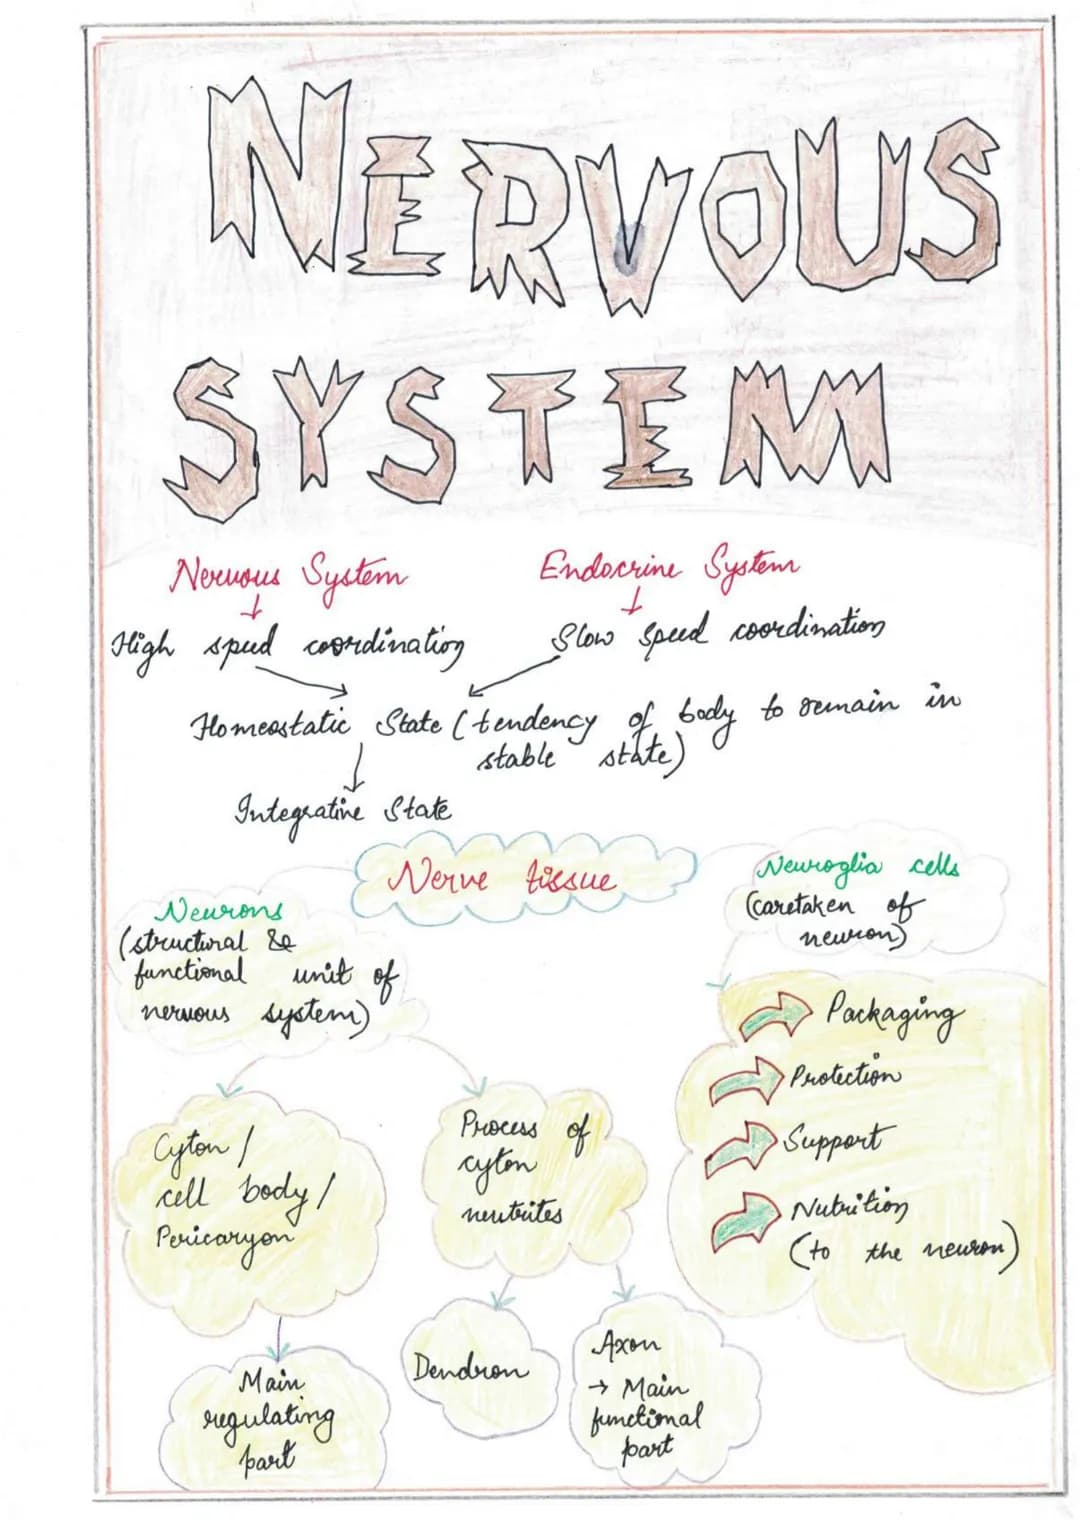 NERVOUS
SYSTEM
Nervous System
↓
Endocrine System
↓
High speed coordination
Slow speed coordination
Homeostatic State (tendency of body to remain in
stable state)
Integrative State
Nerve tissue
Neurons
(structural &
functional unit of
nervous system)
Neuroglia cells
(caretaken of
neuron)
Packaging
Protection
Support
Nutrition
(to the neuron)
Cyton /
cell body /
Pericaryon
Process of
cyton
neutrites
Main
regulating
part
Dendron
Axon
→ Main
functional
part